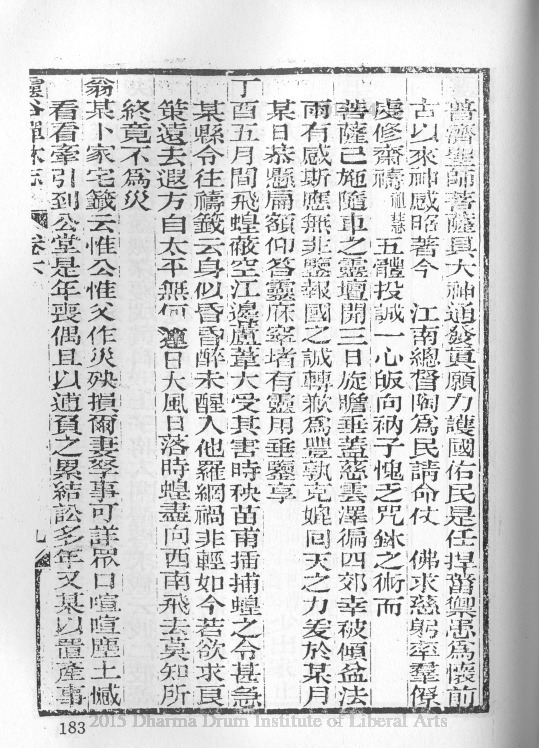 普濟聖師菩薩具大神通發眞願力護國佑民是任捍菑禦患爲懷前
古以來神感昭著今　江南總督陶爲民請命仗　佛求慈躬率羣僚
虔修齋禱祖慧五體投誠一心皈向衲子愧乏咒鉢之術而
菩薩已施隨車之靈壇開三日旋瞻垂蓋慈雲澤徧四郊幸被傾盆法
雨有感斯應無非鑒報國之誠轉歉爲豐孰克媲回天之力爰於某月
某日恭懸扁額仰答靈庥窣堵有靈用垂鑒享
丁酉五月間飛蝗蔽空江邊蘆葦大受其害時秧苗甫插捕蝗之令甚急
某縣令往禱籤云身似昏昏醉未醒入他羅網禍非輕如今若欲求良
策遠去遐方自太平無何 日大風日落時蝗盡向西南飛去莫知所
終竟不爲災
翁某卜家宅籤云惟公惟父作災殃損爾妻孥事可詳眾口喧喧塵土憾
看看牽引到公堂是年喪偶且以逋負之累結訟多年又某以置產事
靈谷禪林志　卷六　九
183
2015 Dharma Drum Institute of Liberal Arts